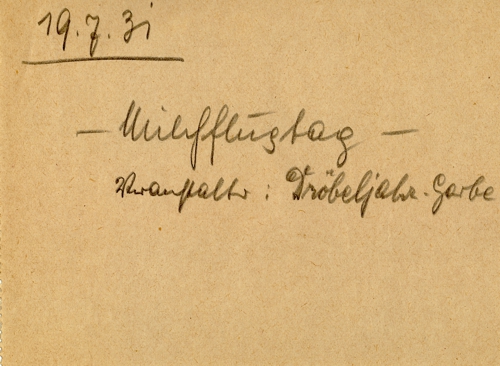 19.7.31
- Milchflugtag -
Veranstalter: Dröbeljahr-Garbe